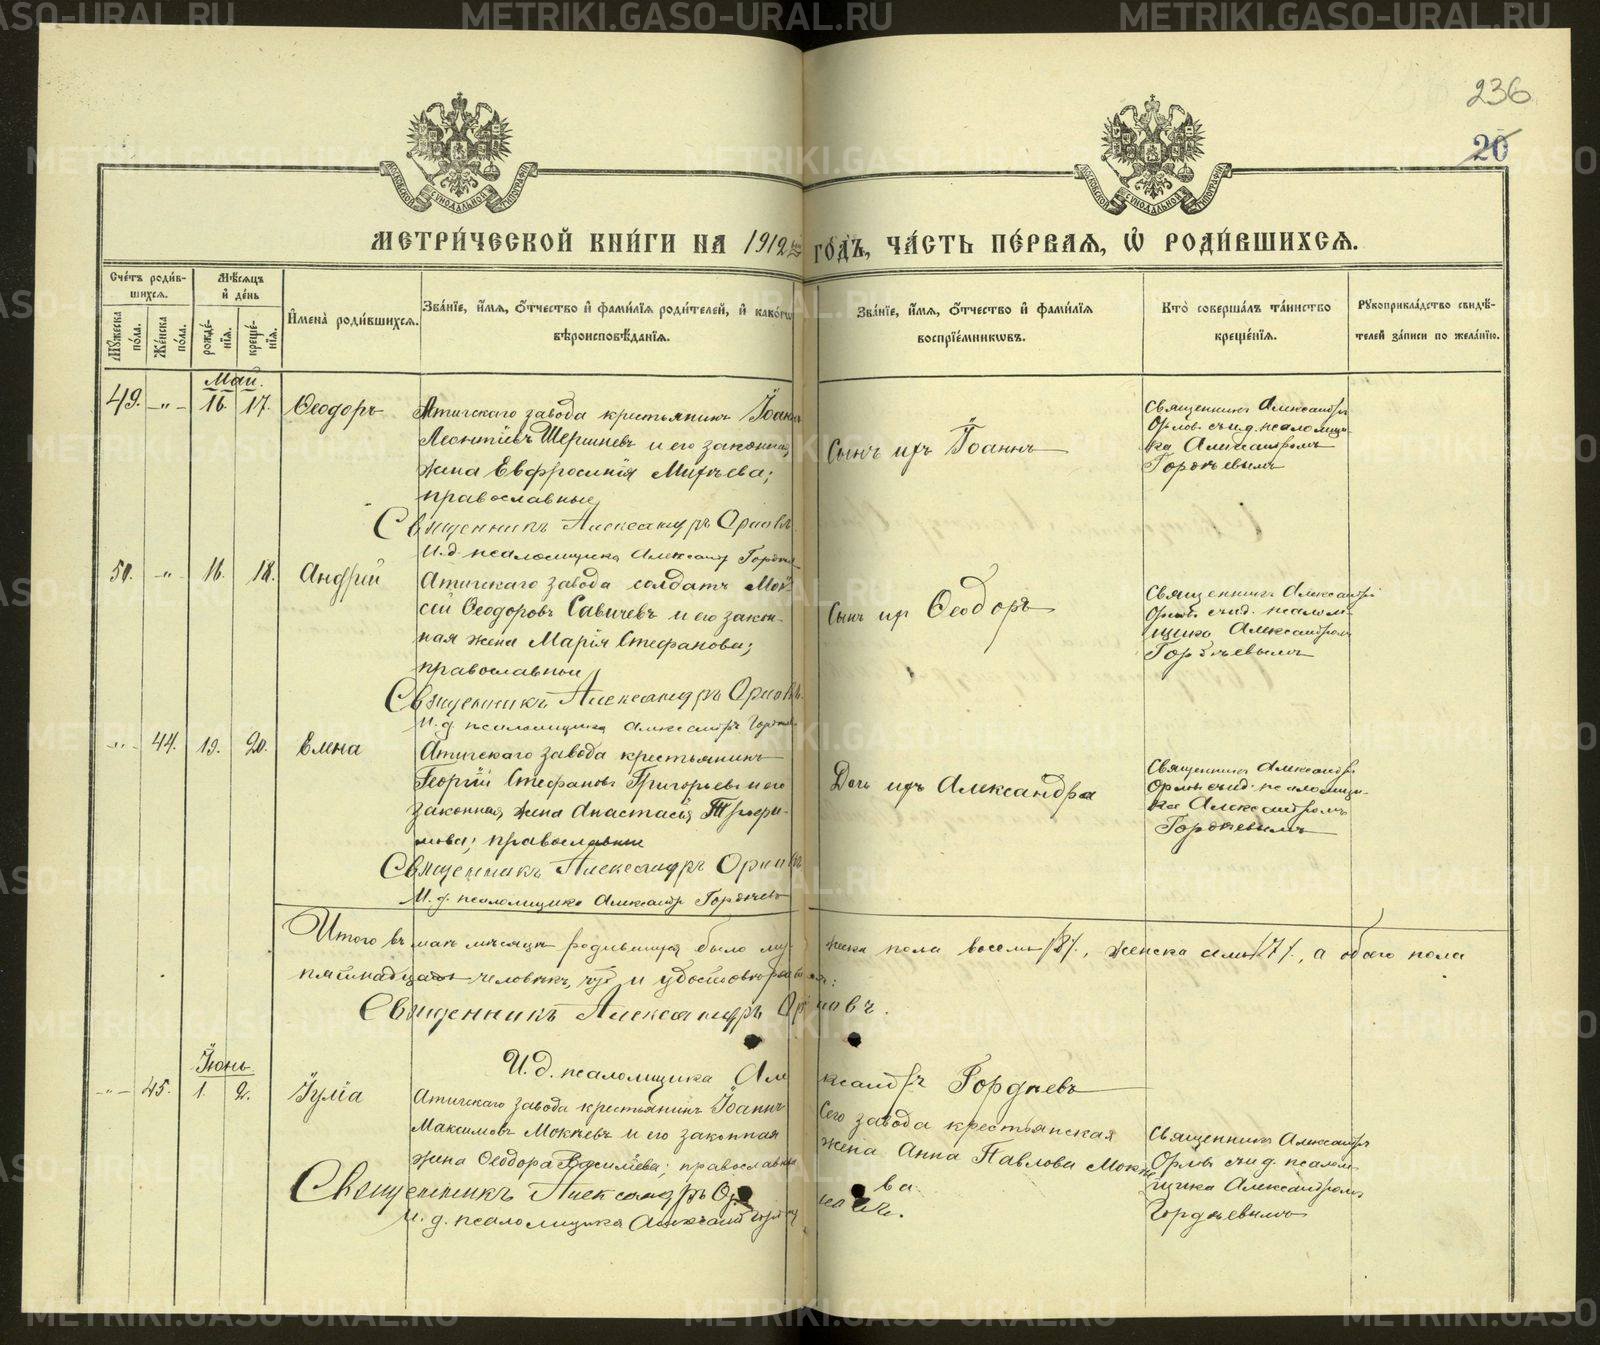 METRIKI.GASO-URAL.RU
236
20
МЕТРИ́ЧЕСКОЙ КНИ́ГИ НА 1912 ГО́ДЪ, ЧА́СТЬ ПЕ́РВАЯ, Ѡ РОДИ́ВШИХСЯ.
Сче́тъ роди́вшихся.
Мꙋ́жеска по́ла.
Же́нска по́ла.
Мѣ́сяцъ и҆ де́нь
рожде́нїя.
креще́нїя.
И҆мена̀ роди́вшихся.
Зва́нїе, и҆́мя, ѻ҆́тчество и҆ фами́лїя роди́телей, и҆ како́гѡ вѣроисповѣ́данїя.
Зва́нїе, и҆́мя, ѻ҆́тчество и҆ фами́лїя воспрїе́мникѡвъ.
Кто̀ соверша́лъ та́инство креще́нїя.
Рꙋкоприкла́дство свидѣ́телей за́писи по жела́нїю.
Май.
49. —„— 16. 17. Ѳеодоръ
Атигскаго завода крестьянинъ Іоаннъ
Леонтіевъ Шершневъ и его законная
жена Евфросинія Матѳеева;
православные
Сынъ ихъ Іоаннъ
Священникъ Александръ
Орловъ съ и.д. псаломщи-
ка Александромъ
Гордѣевымъ
Священникъ Александръ Орловъ
И.д. псаломщика Александръ Гордѣевъ
50. —„— 16. 18. Андрей
Атигскаго завода солдатъ Мои-
сей Ѳеодоровъ Савичевъ и его закон-
ная жена Марія Стефанова;
православные
Сынъ их Ѳеодоръ
Священникъ Александръ
Орловъ съ и.д. псалом-
щика Александромъ
Гордѣевымъ
Священникъ Александръ Орловъ
И.д. псаломщика Александръ Гордѣевъ
—„— 44. 19. 20. Елена
Атигскаго завода крестьянинъ
Георгій Стефановъ Григорьевъ и его
законная жена Анастасія Трофи-
мова; православные
Дочь ихъ Александра
Священникъ Александръ
Орловъ съ и.д. псаломщи-
ка Александромъ
Гордѣевымъ
Священникъ Александръ Орловъ
И.д. псаломщика Александръ Гордѣевъ
Итого въ маѣ мѣсяцѣ родившихся было мужеска пола восемь /8/, женска семь /7/, а обоего пола
пятнадцать человѣкъ, что и удостовѣряемъ:
Священникъ Александръ Орловъ.
И.д. псаломщика Александръ Гордѣевъ
Іюнь
—„— 45. 1. 2. Іулія
Атигскаго завода крестьянинъ Іоаннъ
Максимовъ Мокѣевъ и его законная
жена Ѳеодора Васильева; православные
Сего завода крестьянская
жена Анна Павлова Мокѣе
ва.
Священникъ Александръ
Орловъ съ и.д. псалом-
щика Александромъ
Гордѣевымъ
Священникъ Александръ Орловъ.
И.д. псаломщика Александръ